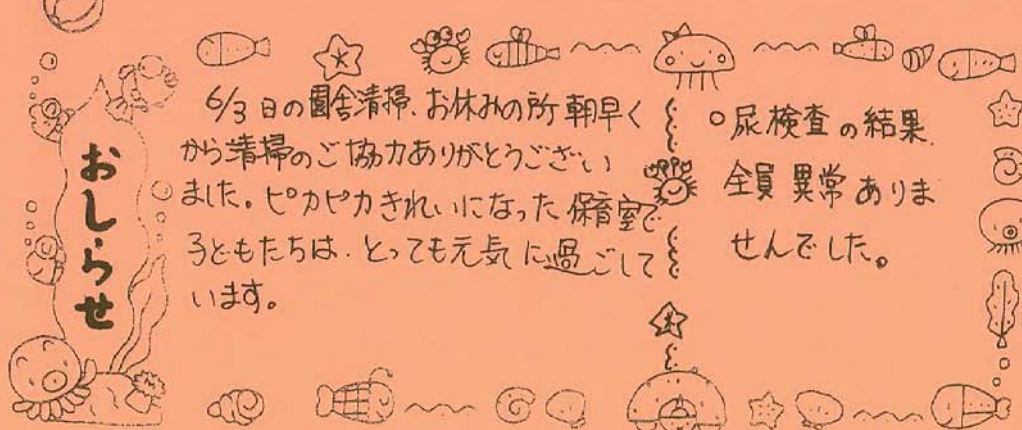 おしらせ
6/3日の園舎清掃、お休みの所朝早く
から清掃のご協力ありがとうござい
ました。ピカピカきれいになった保育室で
子どもたちは、とっても元気に過ごして
います。
○尿検査の結果、
全員異常ありま
せんでした。